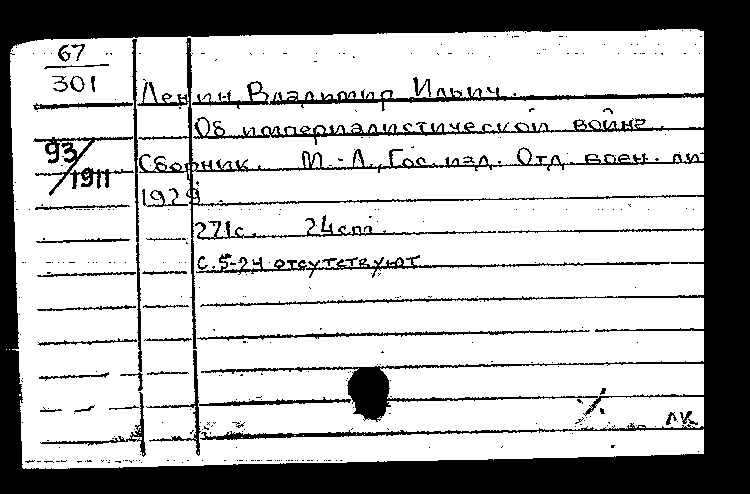 67
301
Ленин, Владимир Ильич.
Об империалистической войне.
93/1911
Сборник. М.-Л., Гос. изд. Отд. воен. ли
1929.
271с. 24см.
С. 5-24 отсутствуют
ЛК